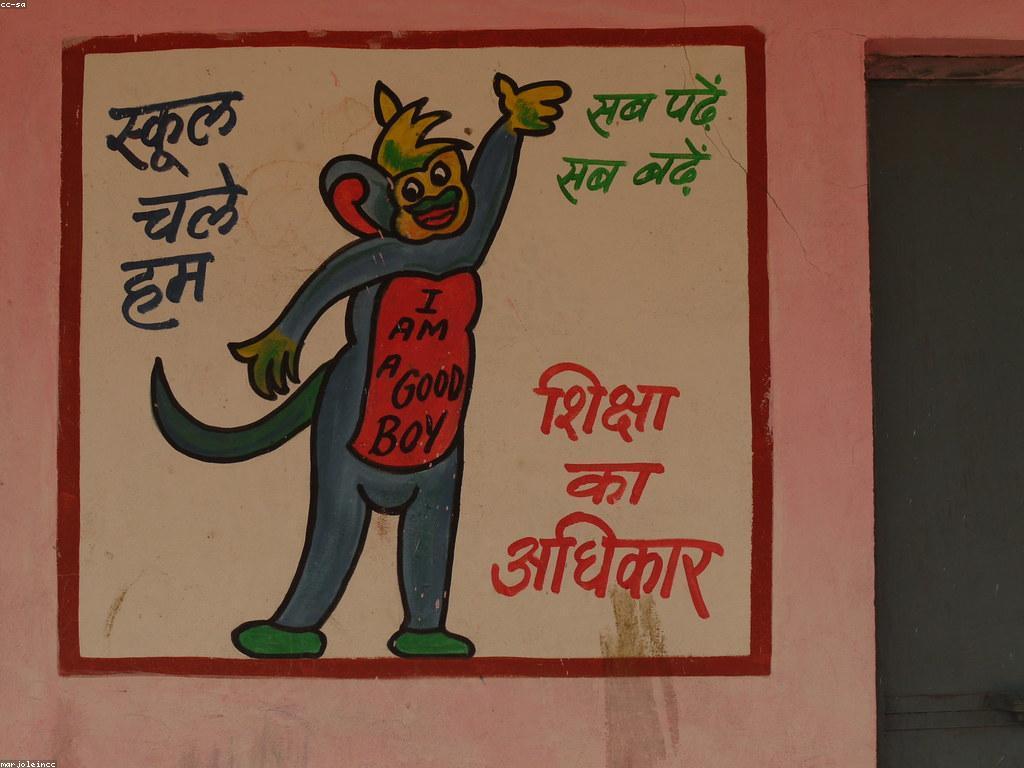 cc-sa
स्कूल
चले
हम
सब पढ़ें
सब बढ़ें
I
AM
A
GOOD
BOY
शिक्षा
का
अधिकार
marjoleincc